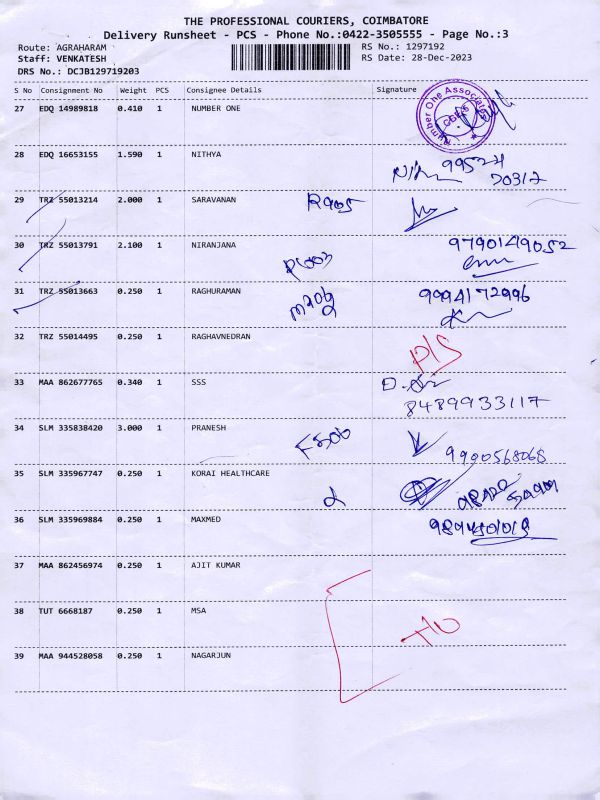 THE PROFESSIONAL COURIERS, COIMBATORE
Delivery Runsheet - PCS - Phone No.:0422-3505555 - Page No.:3
Route: AGRAHARAM RS No.: 1297192
Staff: VENKATESH RS Date: 28-Dec-2023
DRS No.: DCJB129719203
S No Consignment No Weight PCS Consignee Details Signature
27 EDQ 14989818 0.410 1 NUMBER ONE
Number One Associates
28 EDQ 16653155 1.590 1 NITHYA
70317
29 TRZ 55013214 2.000 1 SARAVANAN
30 TRZ 55013791 2.100 1 NIRANJANA 9790149052
31 TRZ 55013663 0.250 1 RAGHURAMAN 9994172996
32 TRZ 55014495 0.250 1 RAGHAVNEDRAN P/S
33 MAA 862677765 0.340 1 SSS
8489933117
34 SLM 335838420 3.000 1 PRANESH 9990568068
35 SLM 335967747 0.250 1 KORAI HEALTHCARE
36 SLM 335969884 0.250 1 MAXMED
37 MAA 862456974 0.250 1 AJIT KUMAR
38 TUT 6668187 0.250 1 MSA
39 MAA 944528058 0.250 1 NAGARJUN